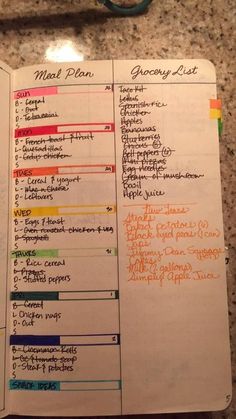 Meal Plan
SUN
B - Cereal
L - Out
D -
MON
B - French toast & fruit
L - Quesadillas
D - chicken
TUES
B - Cereal & yogurt
L - Mac n Cheese
D - Leftovers
WED
B - Eggs & toast
L - Oven roasted chicken & veg
D - Spaghetti
THURS
B - Rice cereal
L - Pizzas
D - Stuffed peppers
FRI
B - Cereal
L - Chicken nugs
D - Out
B - Cinnamon Rolls
L - & tomato soup
D - Steak & potatoes
SNACK IDEAS
Grocery List
Taco Kit
Lettuce
Spanish rice
Chicken
Apples
Bananas
Blueberries
Onions
Bell peppers (6)
Mini pizzas
Egg Noodles
Cream of mushroom
Basil
Apple Juice
New Years
Steaks
Baked potatoes
Black eyed peas (1 can)
Jimmy Dean Sausage
Milk (2 gallons)
Simply Apple Juice